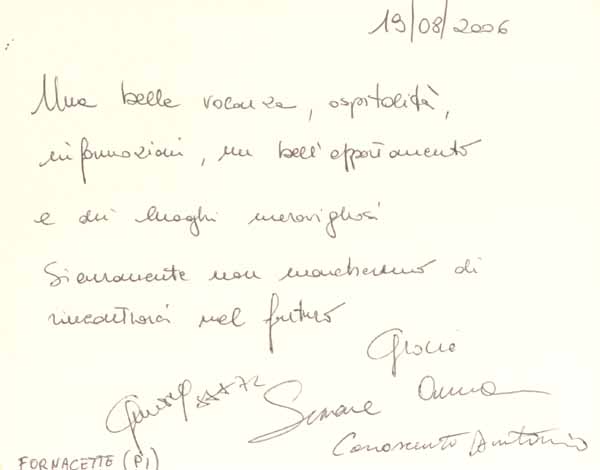 19/08/2006
Una bella vacanza, ospitalità,
informazioni, un bell'appartamento
e dei luoghi meravigliosi
Sicuramente non mancheremo di
rincontrarci nel futuro
Grazie
Simone Anna
Antonio
FORNACETTE (PI)